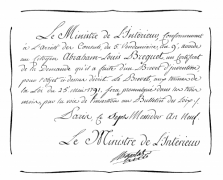 Le Ministre de l'Intérieur Conformément
à l'Arrêté des Consuls du 5 Vendémiaire, an 9, accorde
au Citoyen Abraham-Louis Breguet, un Certificat
de Demande qu'il a faite d'un Brevet d'Invention,
pour l'objet ci-dessus décrit. Le Brevet, aux termes de
la Loi du 25 mai 1791, sera proclamé dans un trois
mois, par la voie de l'insertion au Bulletin des Loix
Paris, le Sept Messidor An Neuf
Le Ministre de l'Intérieur